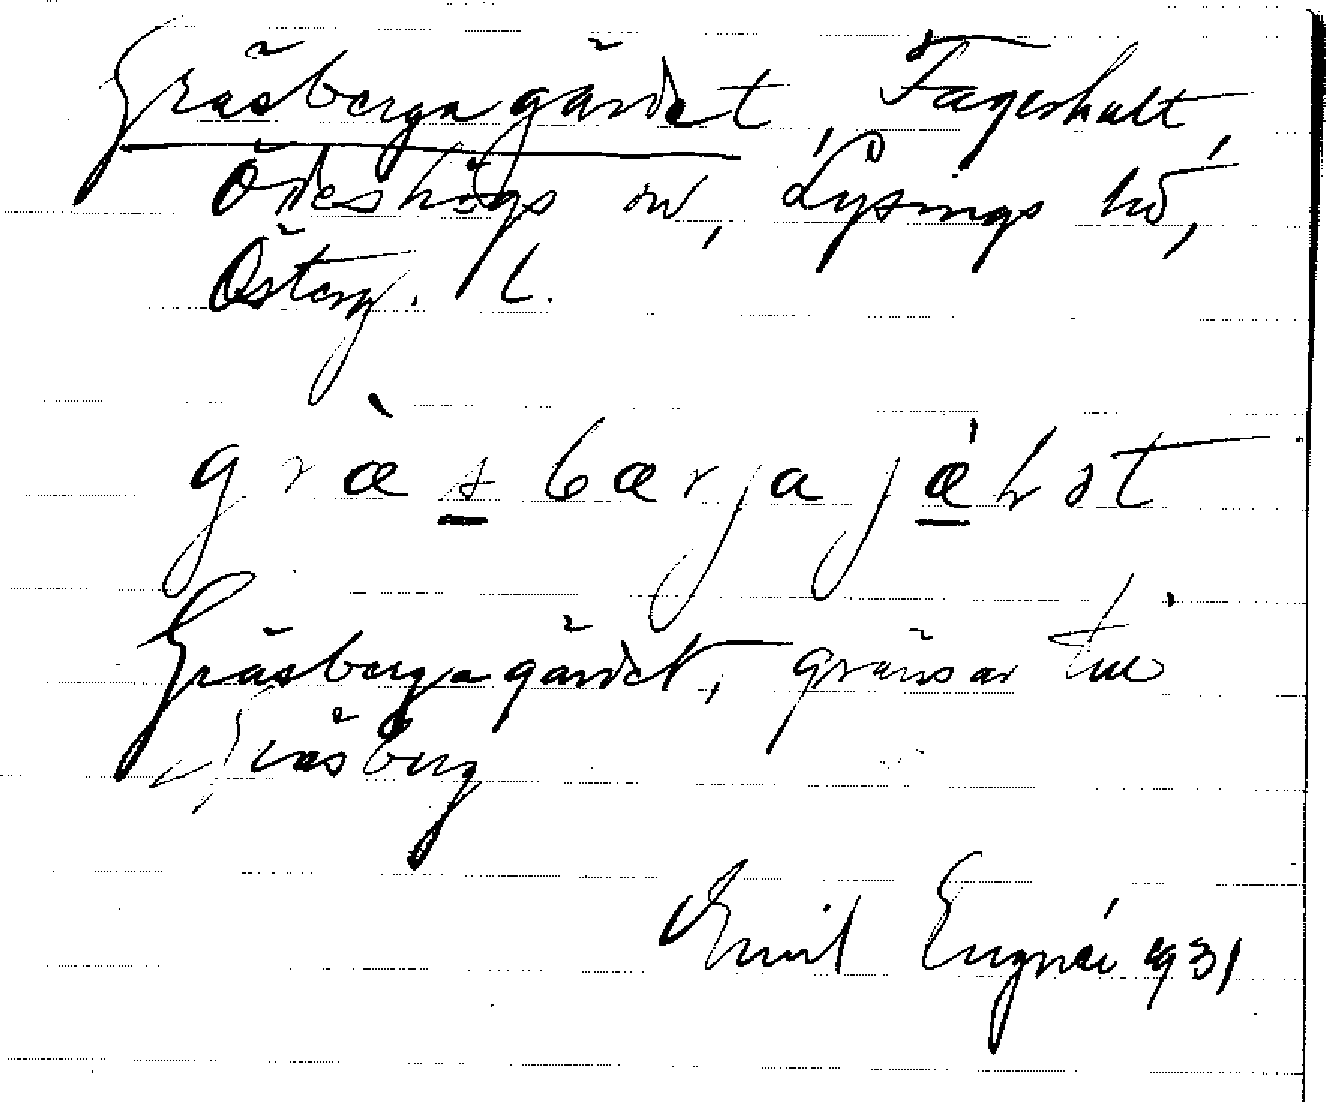 Gräsbergagärdet, Fagerhult,
Ödeshögs sn, Lysings hd,
Österg. l.
græ̀sbærjajǽɦst
Gräsbergagärdet, gränsar till
Gräsberg
Emil 1931